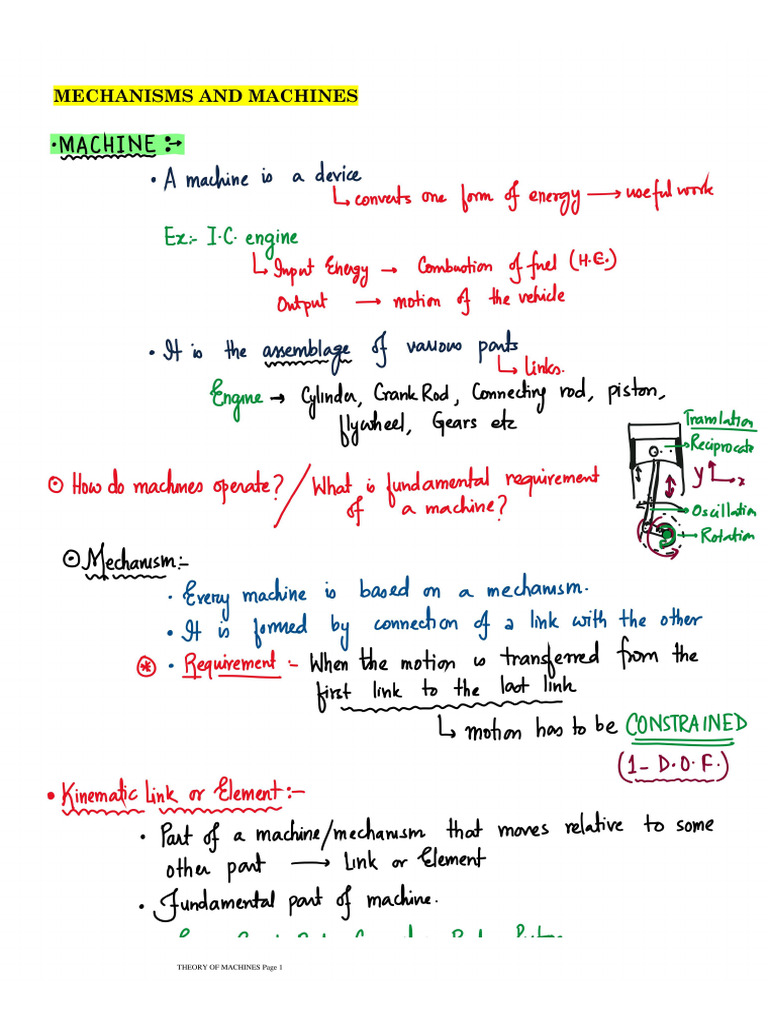 MECHANISMS AND MACHINES
•MACHINE :→
• A machine is a device
↳ converts one form of energy → useful work
Ex:- I.C. engine
↳ Input Energy → Combustion of fuel (H.E.)
Output → motion of the vehicle
• It is the assemblage of various parts
↳ Links.
Engine → Cylinder, Crank Rod, Connecting rod, piston,
flywheel, Gears etc
Translation
Reciprocate
y
x
Oscillation
Rotation
⊙ How do machines operate? / What is fundamental requirement
of a machine?
⊙ Mechanism:-
• Every machine is based on a mechanism.
• It is formed by connection of a link with the other
⊛ • Requirement :- When the motion is transferred from the
first link to the last link
↳ motion has to be CONSTRAINED
(1- D.O.F.)
• Kinematic Link or Element:-
• Part of a machine/mechanism that moves relative to some
other part → Link or Element
• Fundamental part of machine.
THEORY OF MACHINES Page 1